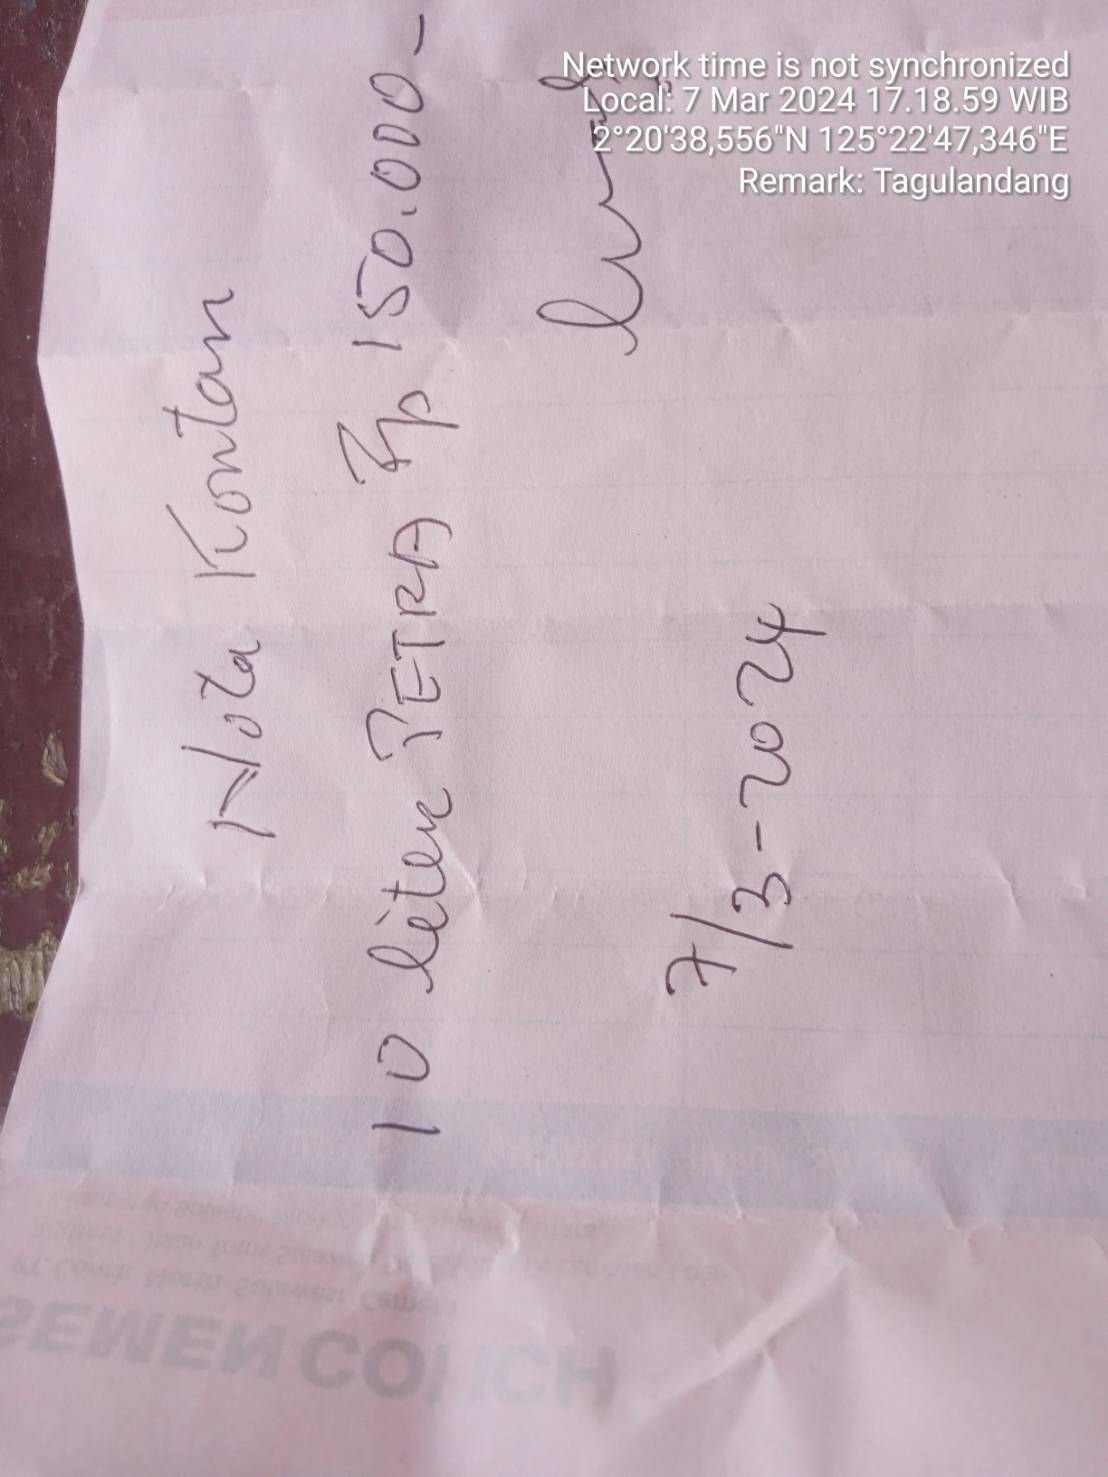 Network time is not synchronized
Local: 7 Mar 2024 17.18.59 WIB
2°20'38,556"N 125°22'47,346"E
Remark: Tagulandang
Nota Kontan
10 liter PETRA Rp 150.000-
7/3-2024
PT. Conch North Sulawesi Cement
SEMEN CONCH